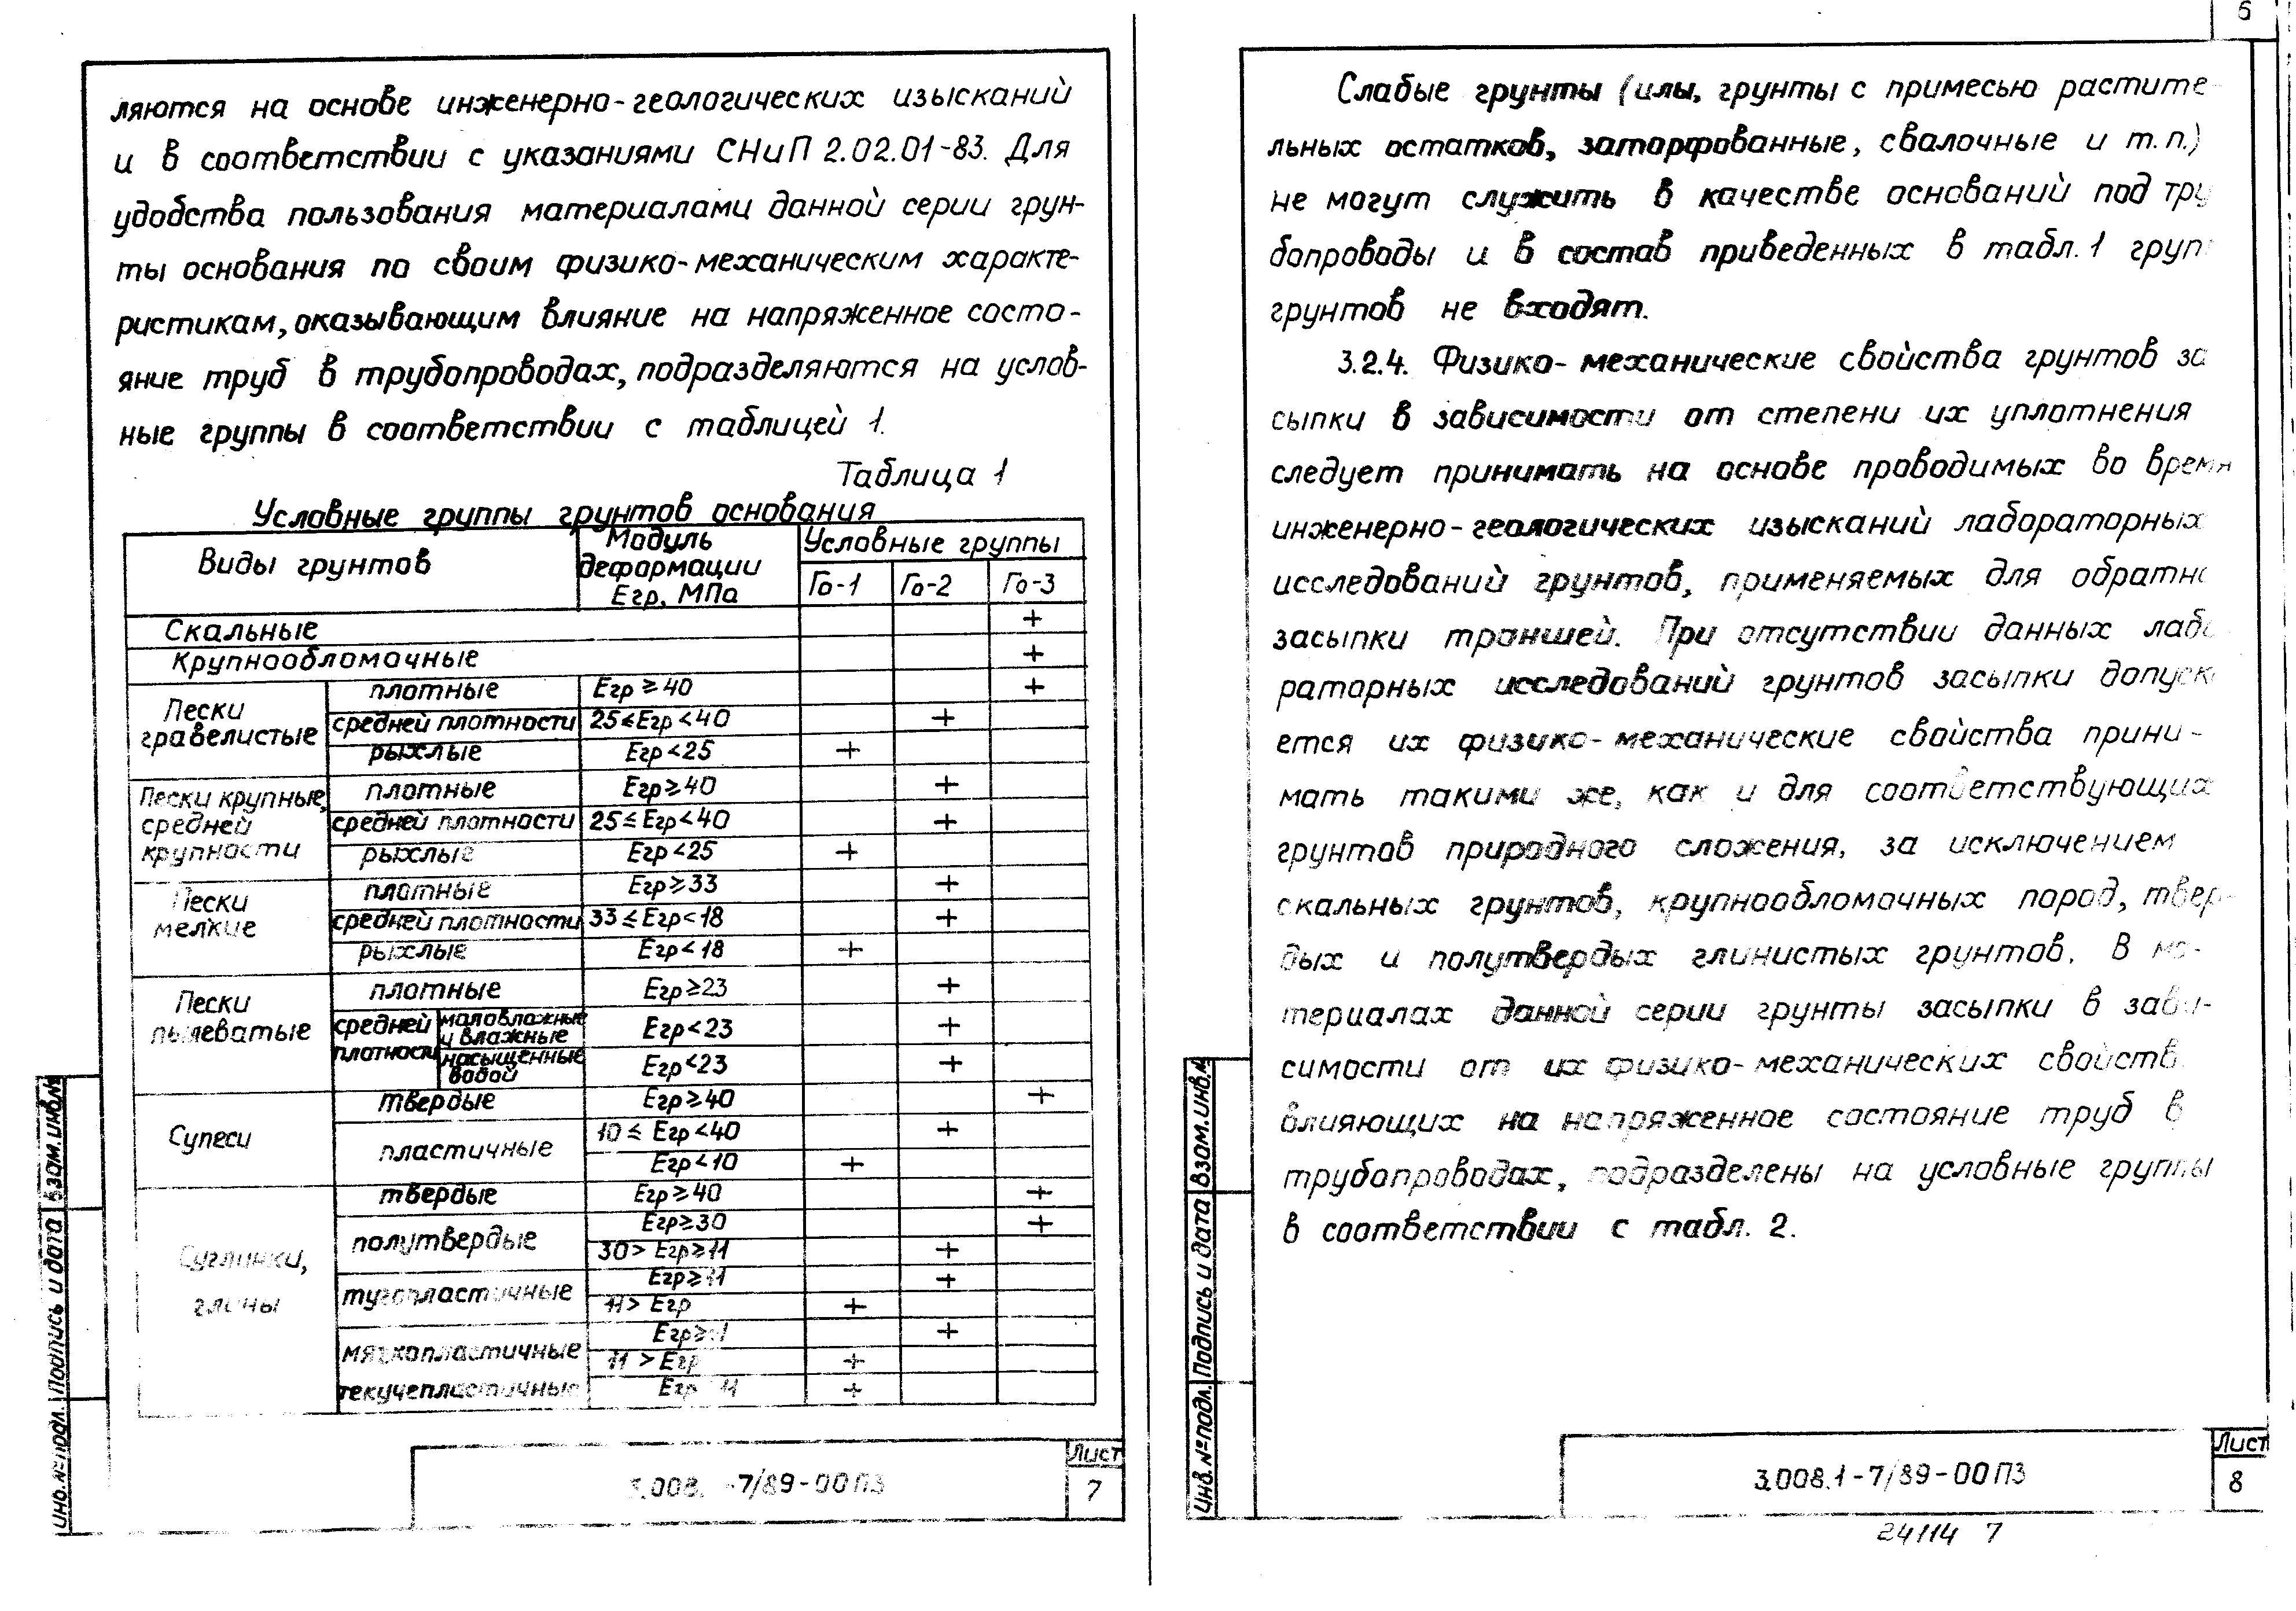 ляются на основе инженерно-геологических изысканий
и в соответствии с указаниями СНиП 2.02.01-83. Для
удобства пользования материалами данной серии грун-
ты основания по своим физико-механическим характе-
ристикам, оказывающим влияние на напряженное состо-
яние труб в трубопроводах, подразделяются на услов-
ные группы в соответствии с таблицей 1.
Таблица 1
Условные группы грунтов основания
Виды грунтов
Модуль
деформации
Егр, МПа
Условные группы
Го-1 Го-2 Го-3
Скальные +
Крупнообломочные +
Пески
гравелистые
плотные Егр ≥ 40 +
средней плотности 25 ≤ Егр < 40 +
рыхлые Егр < 25 +
Пески крупные,
средней
крупности
плотные Егр ≥ 40 +
средней плотности 25 ≤ Егр < 40 +
рыхлые Егр < 25 +
Пески
мелкие
плотные Егр ≥ 33 +
средней плотности 33 ≤ Егр < 18 +
рыхлые Егр < 18 +
Пески
пылеватые
плотные Егр ≥ 23 +
средней
плотности
маловлажные
и влажные
Егр < 23 +
насыщенные
водой
Егр < 23 +
Супеси
твердые Егр ≥ 40 +
пластичные
10 ≤ Егр < 40 +
Егр < 10 +
Суглинки,
глины
твердые Егр ≥ 40 +
полутвердые
Егр ≥ 30 +
30 > Егр ≥ 11 +
тугопластичные
Егр ≥ 11 +
11 > Егр +
мягкопластичные
Егр ≥ +
11 > Егр +
текучепластичные Егр 11 +
Инв. № подл. Подпись и дата Взам. инв. №
3.008. -7/89-00ПЗ
Лист
7
6
Слабые грунты (илы, грунты с примесью растите-
льных остатков, заторфованные, свалочные и т.п.)
не могут служить в качестве оснований под тру
бопроводы и в состав приведенных в табл. 1 груп
грунтов не входят.
3.2.4. Физико-механические свойства грунтов за
сыпки в зависимости от степени их уплотнения
следует принимать на основе проводимых во время
инженерно-геологических изысканий лабораторных
исследований грунтов, применяемых для обратно
засыпки траншей. При отсутствии данных лабо
раторных исследований грунтов засыпки допуск
ется их физико-механические свойства прини-
мать такими же, как и для соответствующих
грунтов природного сложения, за исключением
скальных грунтов, крупнообломочных пород, твер-
дых и полутвердых глинистых грунтов. В ма-
териалах данной серии грунты засыпки в зави-
симости от их физико-механических свойств
влияющих на напряженное состояние труб в
трубопроводах, подразделены на условные группы
в соответствии с табл. 2.
Инв. № подл. Подпись и дата Взам. инв. №
3.008.1-7/89-00ПЗ
Лист
8
24114 7